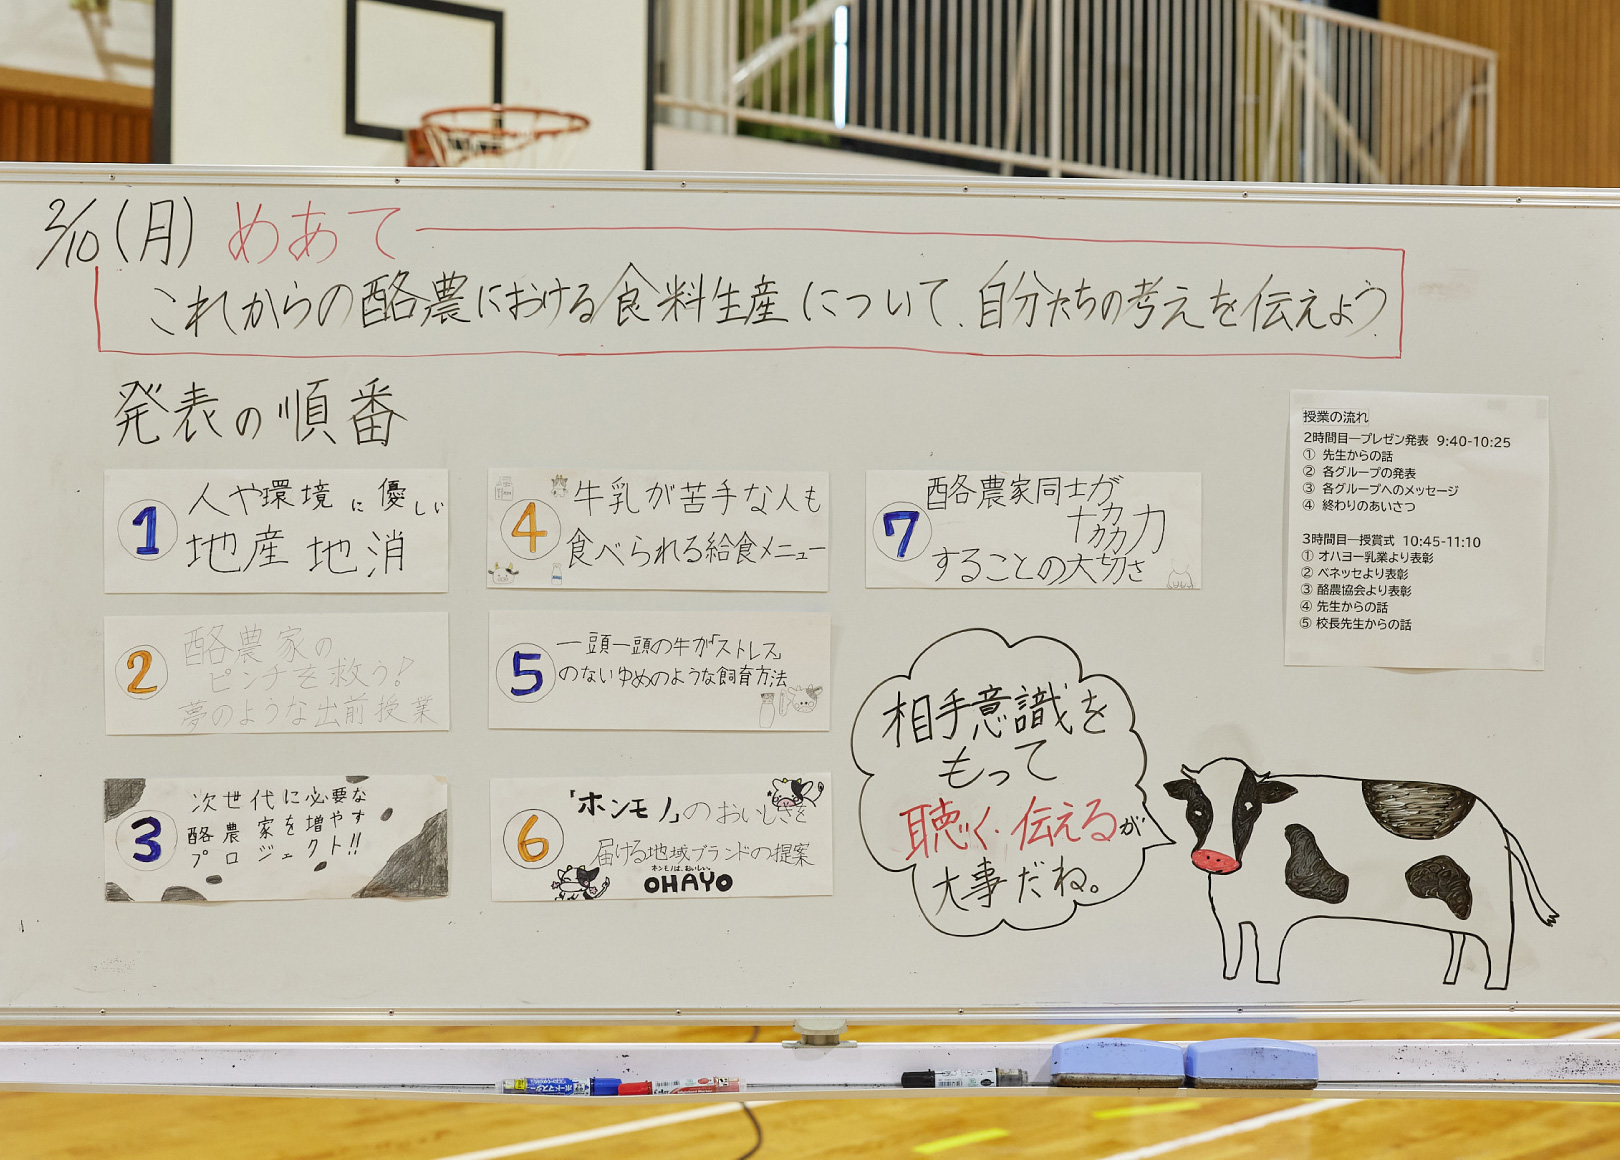 2/10(月) めあて
これからの酪農における食料生産について、自分たちの考えを伝えよう
発表の順番
1 人や環境に優しい
地産地消
2 酪農家の
ピンチを救う!
夢のような出前授業
3 次世代に必要な
酪農家を増やす
プロジェクト!!
4 牛乳が苦手な人も
食べられる給食メニュー
5 一頭一頭の牛が「ストレス」
のないゆめのような飼育方法
6 「ホンモノ」のおいしさを
届ける地域ブランドの提案
ホンモノは、おいしい。
OHAYO
7 酪農家同士が
協力
することの大切さ
授業の流れ
2時間目―プレゼン発表 9:40-10:25
① 先生からの話
② 各グループの発表
③ 各グループへのメッセージ
④ 終わりのあいさつ
3時間目―授賞式 10:45-11:10
① オハヨー乳業より表彰
② ベネッセより表彰
③ 酪農協会より表彰
④ 先生からの話
⑤ 校長先生からの話
相手意識を
もって
聴く・伝えるが
大事だね。